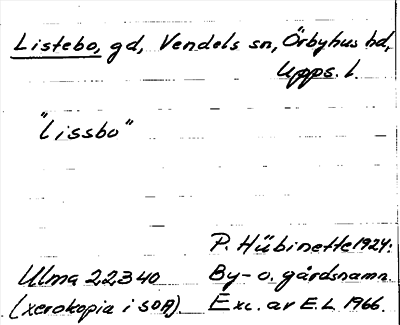 Listebo, gd, Vendels sn, Örbyhus hd,
Upps. l.
"Lissbo"
P. Hübinette 1924:
Ulma 22340 By- o. gårdsnamn.
(xerokopia i SOA). Exc. av E.L. 1966.